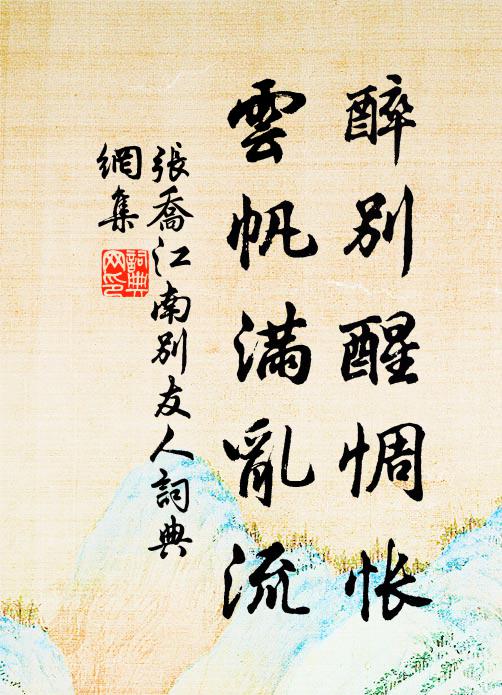 醉別醒惆悵
雲帆滿亂流
張喬江南別友人詞典
網集
詞典
网印